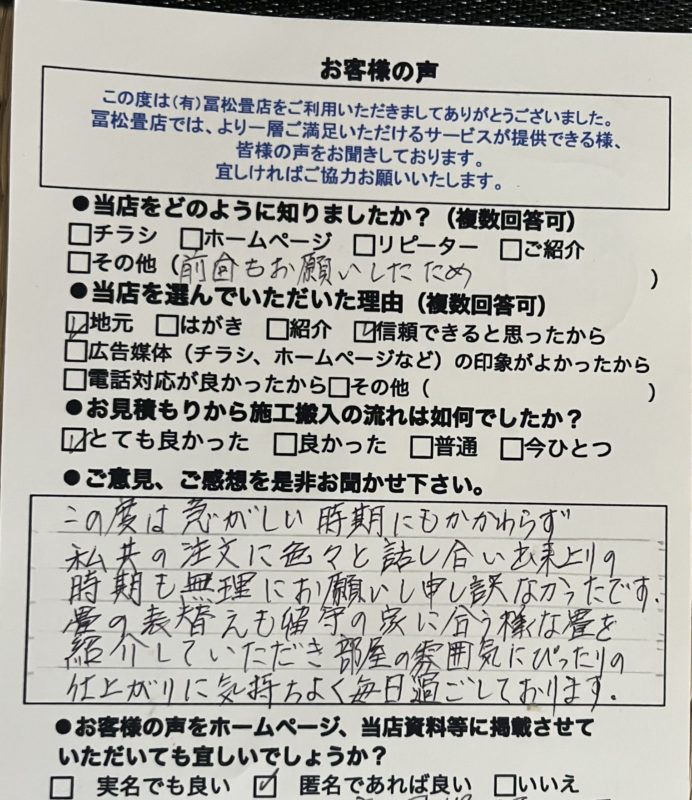 お客様の声
この度は(有)冨松畳店をご利用いただきましてありがとうございました。
冨松畳店では、より一層ご満足いただけるサービスが提供できる様、
皆様の声をお聞きしております。
宜しければご協力お願いいたします。
●当店をどのように知りましたか？（複数回答可）
□チラシ □ホームページ □リピーター □ご紹介
□その他（前回もお願いしたため ）
●当店を選んでいただいた理由（複数回答可）
☑地元 □はがき □紹介 ☑信頼できると思ったから
□広告媒体（チラシ、ホームページなど）の印象がよかったから
□電話対応が良かったから□その他（ ）
●お見積もりから施工搬入の流れは如何でしたか？
☑とても良かった □良かった □普通 □今ひとつ
●ご意見、ご感想を是非お聞かせ下さい。
この度は 急がしい 時期にもかかわらず
私共の注文に色々と話し合い出来上りの
時期も無理にお願いし申し訳なかったです.
畳の表替えも の家に合う様な畳を
紹介していただき 部屋の雰囲気にぴったりの
仕上がりに気持ちよく毎日過ごしております.
●お客様の声をホームページ、当店資料等に掲載させて
いただいても宜しいでしょうか？
□ 実名でも良い ☑ 匿名であれば良い □いいえ